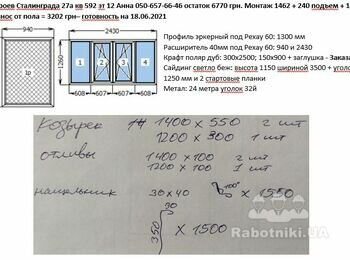 роев Сталинграда 27а кв 592 эт 12 Анна 050-657-66-46 остаток 6770 грн. Монтаж 1462 + 240 подъем + 1
нос от пола = 3202 грн– готовность на 18.06.2021
940
2430
1р
1260
1
2
3
4
608
607
607
608
Профиль эркерный под Рехау 60: 1300 мм
Расширитель 40мм под Рехау 60: 940 и 2430
Крафт поляр дуб: 300х2500; 150х900 + заглушка - Заказа
Сайдинг светло беж: высота 1150 шириной 3500 + уголо
1250 мм и 2 стартовые планки
Метал: 24 метра уголок 32й
Козырек 1400 x 550 2 шт
1200 x 300 1 шт
отливы 1400 x 100 2 шт
1200 x 100 1 шт
нащельник 30 x 40 100° x 1550
30
350 x 1500
Rabotniki.UA